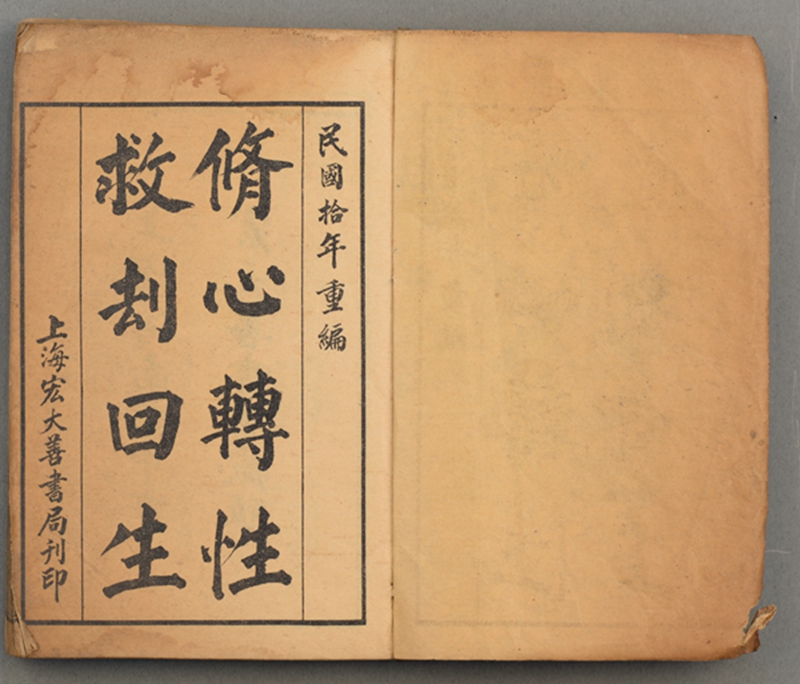 民國拾年重編
脩心轉性
救刦回生
上海宏大善書局刊印